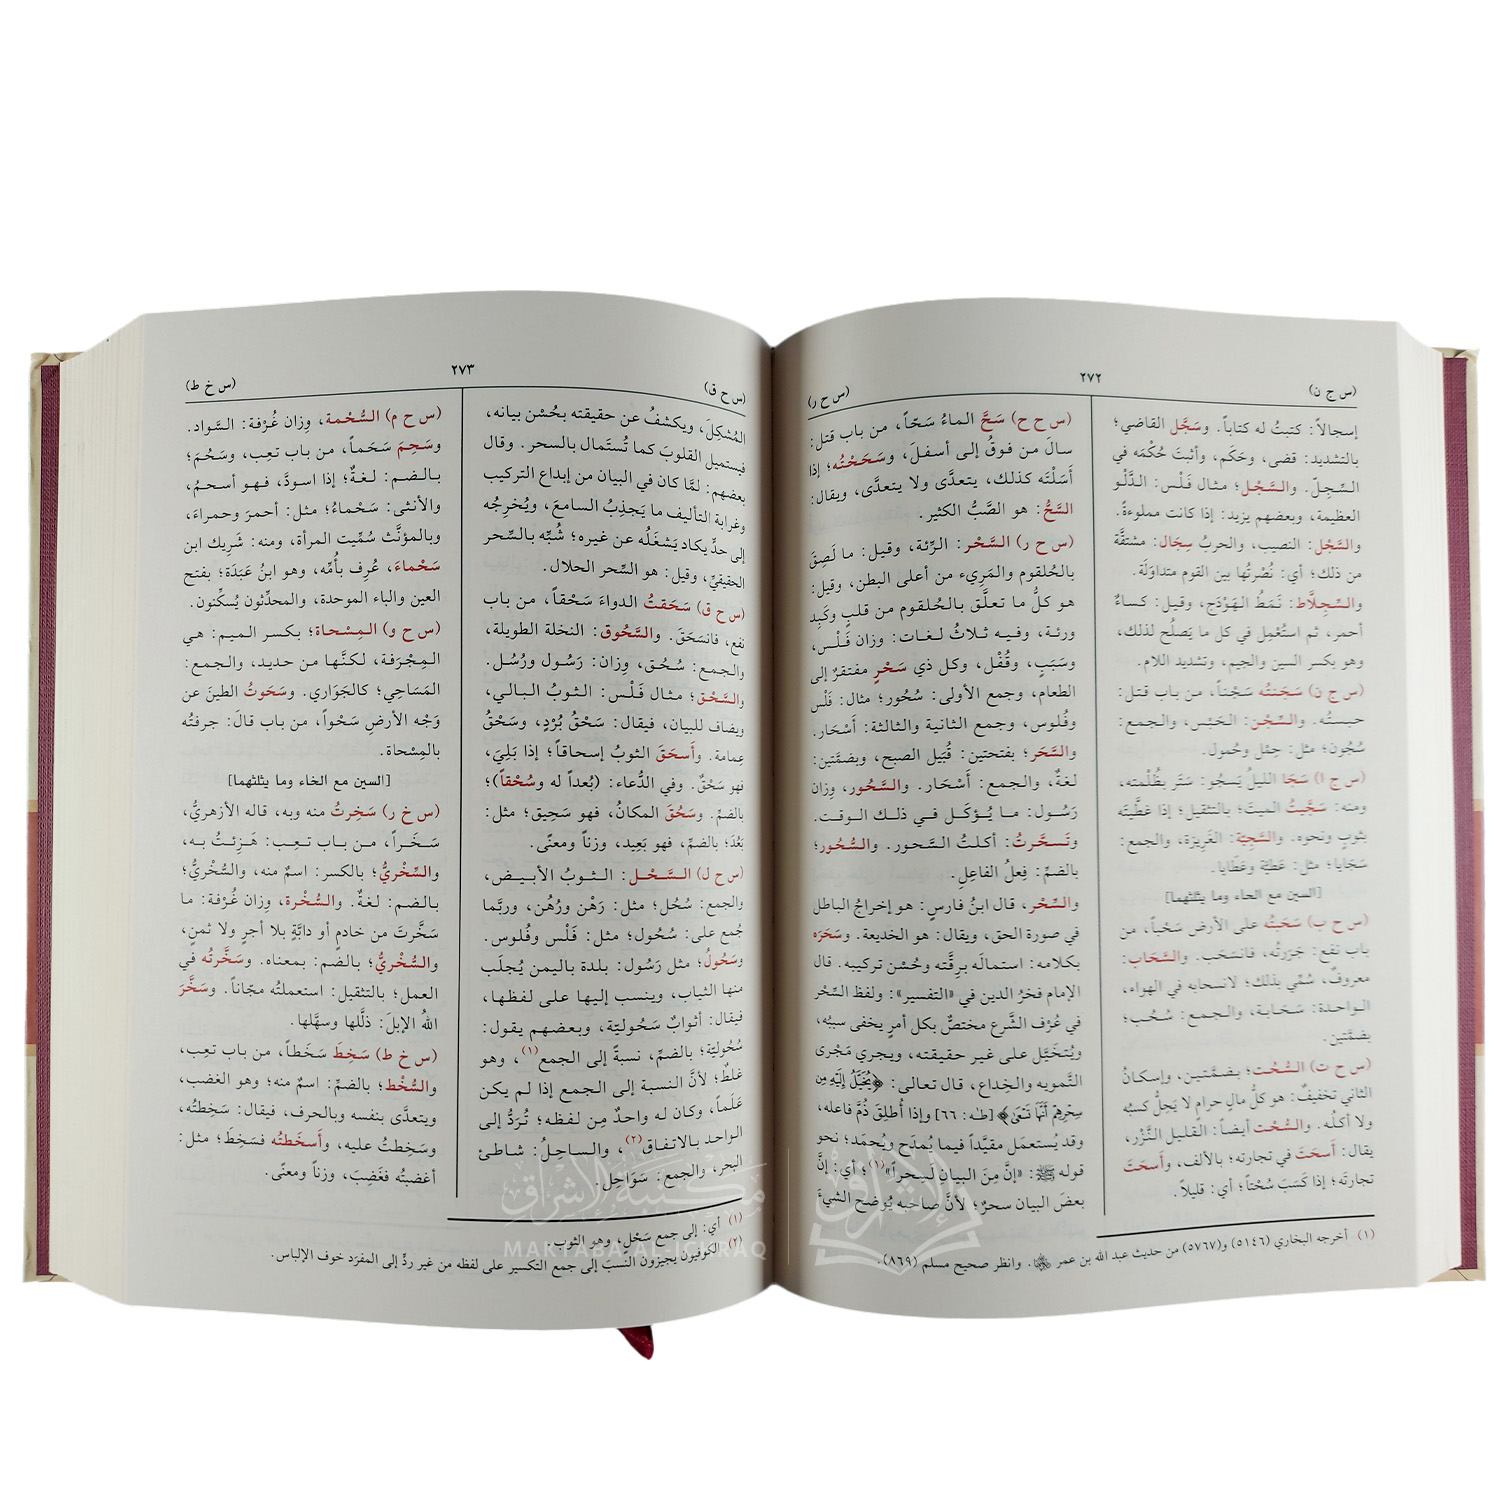 (س ج ن)
٢٧٢
(س ح ر)
إسجالاً: كتبتُ له كتاباً. وسَجَّل القاضي؛
بالتشديد: قضى، وحَكَم، وأثبتَ حُكْمَه في
السِّجِلّ. والسَّجْل؛ مثال فَلْس: الدَّلْو
العظيمة، وبعضهم يزيد: إذا كانت مملوءةً.
والسَّجْل: النصيب، والحربُ سِجَال: مشتقَّة
من ذلك؛ أي: نُصْرتُها بين القوم متداوَلَة.
والسِّجِلَّاط: نَمَطُ الهَوْدَج، وقيل: كساءٌ
أحمر، ثم استُعْمِل في كل ما يَصلُح لذلك،
وهو بكسر السين والجيم، وتشديد اللام.
(س ج ن) سَجَنتُه سَجْناً، من باب قتل:
حبستُه. والسِّجْن: الحَبْس، والجمع:
سُجُون؛ مثل: حِمْل وحُمول.
(س ج ا) سَجَا الليلُ يَسجُو: سَتَر بظُلْمته،
ومنه: سَجَّيتُ الميتَ؛ بالتثقيل؛ إذا غطَّيتَه
بثوبٍ ونحوه. والسَّجِيَّة: الغَرِيزة، والجمع:
سَجَايا؛ مثل: عَطِيَّة وعَطَايا.
[السين مع الحاء وما يثلثهما]
(س ح ب) سَحَبتُه على الأرض سَحْباً، من
باب نفع: جَرَرتُه، فانسَحَب. والسَّحَاب:
معروفٌ، سُمِّي بذلك؛ لانسحابه في الهواء،
الواحدة: سَحَابة، والجمع: سُحُب؛
بضمَّتين.
(س ح ت) السُّحُت؛ بضمَّتين، وإسكانُ
الثاني تخفيفٌ: هو كلُّ مالٍ حرامٍ لا يَحِلُّ كسبُه
ولا أكلُه. والسُّحْت أيضاً: القليل النَّزْر،
يقال: أَسحَتَ في تجارته؛ بالألف، وأَسحَتَ
تجارتَه؛ إذا كَسَبَ سُحْتاً؛ أي: قليلاً.
(س ح ح) سَحَّ الماءُ سَحّاً، من باب قتل:
سالَ من فوقُ إلى أسفلَ، وسَحَحْتُه؛ إذا
أَسَلْتَه كذلك، يتعدَّى ولا يتعدَّى، ويقال:
السَّحُّ: هو الصَّبُّ الكثير.
(س ح ر) السَّحْر: الرِّئة، وقيل: ما لَصِقَ
بالحُلقوم والمَرِيء من أعلى البطن، وقيل:
هو كلُّ ما تعلَّق بالحُلقوم من قلبٍ وكَبِد
ورئة، وفيه ثلاثُ لغات: وزان فَلْس،
وسَبَب، وقُفْل، وكل ذي سَحْرٍ مفتقرٌ إلى
الطعام، وجمع الأولى: سُحُور؛ مثال: فَلْس
وفُلوس، وجمع الثانية والثالثة: أَسْحَار.
والسَّحَر؛ بفتحتين: قُبَيل الصبح، وبضمَّتين:
لغةٌ، والجمع: أَسْحَار. والسَّحُور، وِزان
رَسُول: ما يُؤكَل في ذلك الوقت.
وتَسحَّرتُ: أكلتُ السَّحور. والسُّحُور؛
بالضمِّ: فِعلُ الفاعلِ.
والسِّحْر، قال ابنُ فارسٍ: هو إخراجُ الباطل
في صورة الحق، ويقال: هو الخديعة. وسَحَرَه
بكلامه: استمالَه بِرقَّته وحُسْن تركيبه. قال
الإمام فخرُ الدين في «التفسير»: ولفظ السِّحْر
في عُرْف الشَّرع مختصٌّ بكل أمرٍ يخفى سببُه،
ويُتخَيَّل على غير حقيقته، ويجري مَجْرى
التَّمويه والخِداع، قال تعالى: ﴿يُخَيَّلُ إِلَيْهِ مِن
سِحْرِهِمْ أَنَّهَا تَسْعَىٰ﴾ [طه: ٦٦] وإذا أُطلِقَ ذُمَّ فاعلُه،
وقد يُستعمَل مقيَّداً فيما يُمدَح ويُحمَد؛ نحو
قوله ﷺ: «إنَّ مِنَ البيان لَسِحراً»(١)؛ أي: إنَّ
بعضَ البيان سحرٌ؛ لأنَّ صاحبَه يُوضح الشيءَ
(١) أخرجه البخاري (٥١٤٦) و(٥٧٦٧) من حديث عبد الله بن عمر ﷺ. وانظر صحيح مسلم (٨٦٩).
(س ح ق)
٢٧٣
(س خ ط)
المُشكِلَ، ويكشفُ عن حقيقته بحُسْن بيانه،
فيستميل القلوبَ كما تُستَمال بالسحر. وقال
بعضهم: لمَّا كان في البيان من إبداع التركيب
وغرابة التأليف ما يَجذِبُ السامعَ، ويُخرِجُه
إلى حدٍّ يكاد يَشغَلُه عن غيره؛ شُبِّه بالسِّحر
الحقيقيِّ، وقيل: هو السِّحر الحلال.
(س ح ق) سَحَقتُ الدواءَ سَحْقاً، من باب
نفع، فانسَحَقَ. والسَّحُوق: النخلة الطويلة،
والجمع: سُحُق، وِزان: رَسُول ورُسُل.
والسَّحْق؛ مثال فَلْس: الثوبُ البالي،
ويضاف للبيان، فيقال: سَحْقُ بُرْدٍ، وسَحْقُ
عِمامة. وأَسحَقَ الثوبُ إسحاقاً؛ إذا بَلِيَ،
فهو سَحْقٌ. وفي الدُّعاء: (بُعداً له وسُحْقاً)؛
بالضمِّ. وسَحُقَ المكانُ، فهو سَحِيق؛ مثل:
بَعُدَ؛ بالضمِّ، فهو بَعِيد، وزناً ومعنًى.
(س ح ل) السَّحْل: الثوبُ الأبيض،
والجمع: سُحُل؛ مثل: رَهْن ورُهُن، وربَّما
جُمع على: سُحُول؛ مثل: فَلْس وفُلوس.
وسَحُولُ؛ مثل رَسُول: بلدة باليمن يُجلَب
منها الثياب، وينسب إليها على لفظها،
فيقال: أثوابٌ سَحُوليّة، وبعضهم يقول:
سُحُوليّة؛ بالضمِّ، نسبةً إلى الجمع(١)، وهو
غلطٌ؛ لأنَّ النسبة إلى الجمع إذا لم يكن
عَلَماً، وكان له واحدٌ مِن لفظه؛ تُردُّ إلى
الواحد بالاتفاق(٢)، والساحِلُ: شاطئ
البحر، والجمع: سَوَاحِل.
(س ح م) السُّحْمة، وِزان غُرْفة: السَّواد.
وسَحِمَ سَحَماً، من باب تعِب، وسَحُمَ؛
بالضم: لغةٌ؛ إذا اسودَّ، فهو أسحمُ،
والأنثى: سَحْماءُ؛ مثل: أحمرَ وحمراءَ،
وبالمؤنَّث سُمِّيت المرأة، ومنه: شَرِيك ابن
سَحْماءَ، عُرِف بأُمِّه، وهو ابنُ عَبَدَة؛ بفتح
العين والباء الموحدة، والمحدِّثون يُسكِّنون.
(س ح و) المِسْحاة؛ بكسر الميم: هي
المِجْرَفة، لكنَّها من حديد، والجمع:
المَسَاحِي؛ كالجَوَاري. وسَحَوتُ الطينَ عن
وَجْه الأرضِ سَحْواً، من باب قالَ: جرفتُه
بالمِسْحاة.
[السين مع الخاء وما يثلثهما]
(س خ ر) سَخِرتُ منه وبه، قاله الأزهريُّ،
سَخَراً، من باب تعِب: هَزِئتُ به،
والسِّخْريُّ؛ بالكسر: اسمٌ منه، والسُّخْريُّ؛
بالضم: لغةٌ. والسُّخْرة، وِزان غُرْفة: ما
سَخَّرتَ من خادمٍ أو دابَّةٍ بلا أجرٍ ولا ثمنٍ،
والسُّخْريُّ؛ بالضم: بمعناه. وسَخَّرتُه في
العمل؛ بالتثقيل: استعملتُه مجّاناً. وسَخَّرَ
اللهُ الإبلَ: ذلَّلها وسهَّلها.
(س خ ط) سَخِطَ سَخَطاً، من باب تعِب،
والسُّخْط؛ بالضمِّ: اسمٌ منه؛ وهو الغضب،
ويتعدَّى بنفسه وبالحرف، فيقال: سَخِطتُه،
وسَخِطتُ عليه، وأَسخَطتُه فسَخِطَ؛ مثل:
أغضبتُه فغَضِبَ، وزناً ومعنًى.
(١) أي: إلى جمع سَحْلٍ، وهو الثوب.
(٢) الكوفيون يجيزون النسبَ إلى جمع التكسير على لفظه من غير ردٍّ إلى المفرَد خوف الإلباس.
مكتبة الإشراق
MAKTABA AL-ISHRAQ
الإشراق